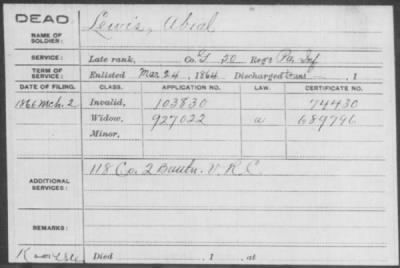 DEAD
NAME OF SOLDIER: Lewis, Abial
SERVICE: Late rank, Co. G 20 Reg't Pa. Inf
TERM OF SERVICE: Enlisted Mar 24, 1864 Discharged , 1
DATE OF FILING. CLASS. APPLICATION NO. LAW. CERTIFICATE NO.
1866 Mch. 2 Invalid, 103830 74430
Widow, 927022 a 689796
Minor,
ADDITIONAL SERVICES: 118 Co. 2 Battn. V. R. C.
REMARKS:
Died , 1 , at